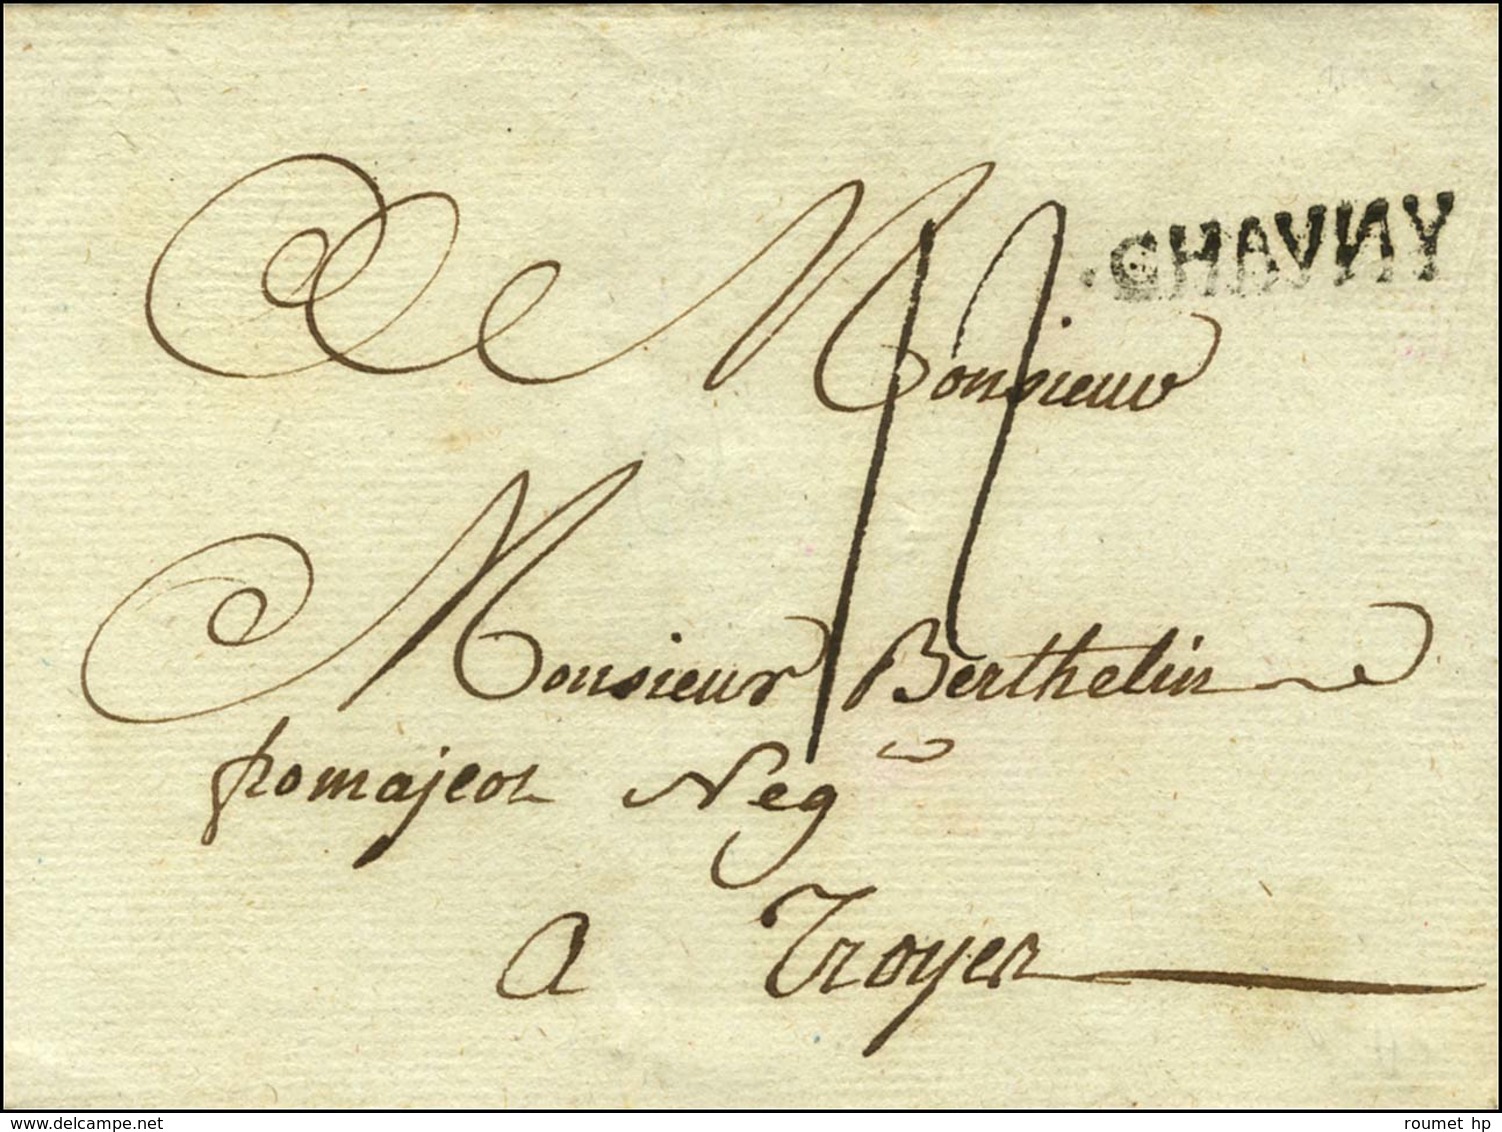 CHAVNY
A Monsieur
Monsieur Berthelin
fromajeot Neg
a Troyes
delcampe.net
roumet hp